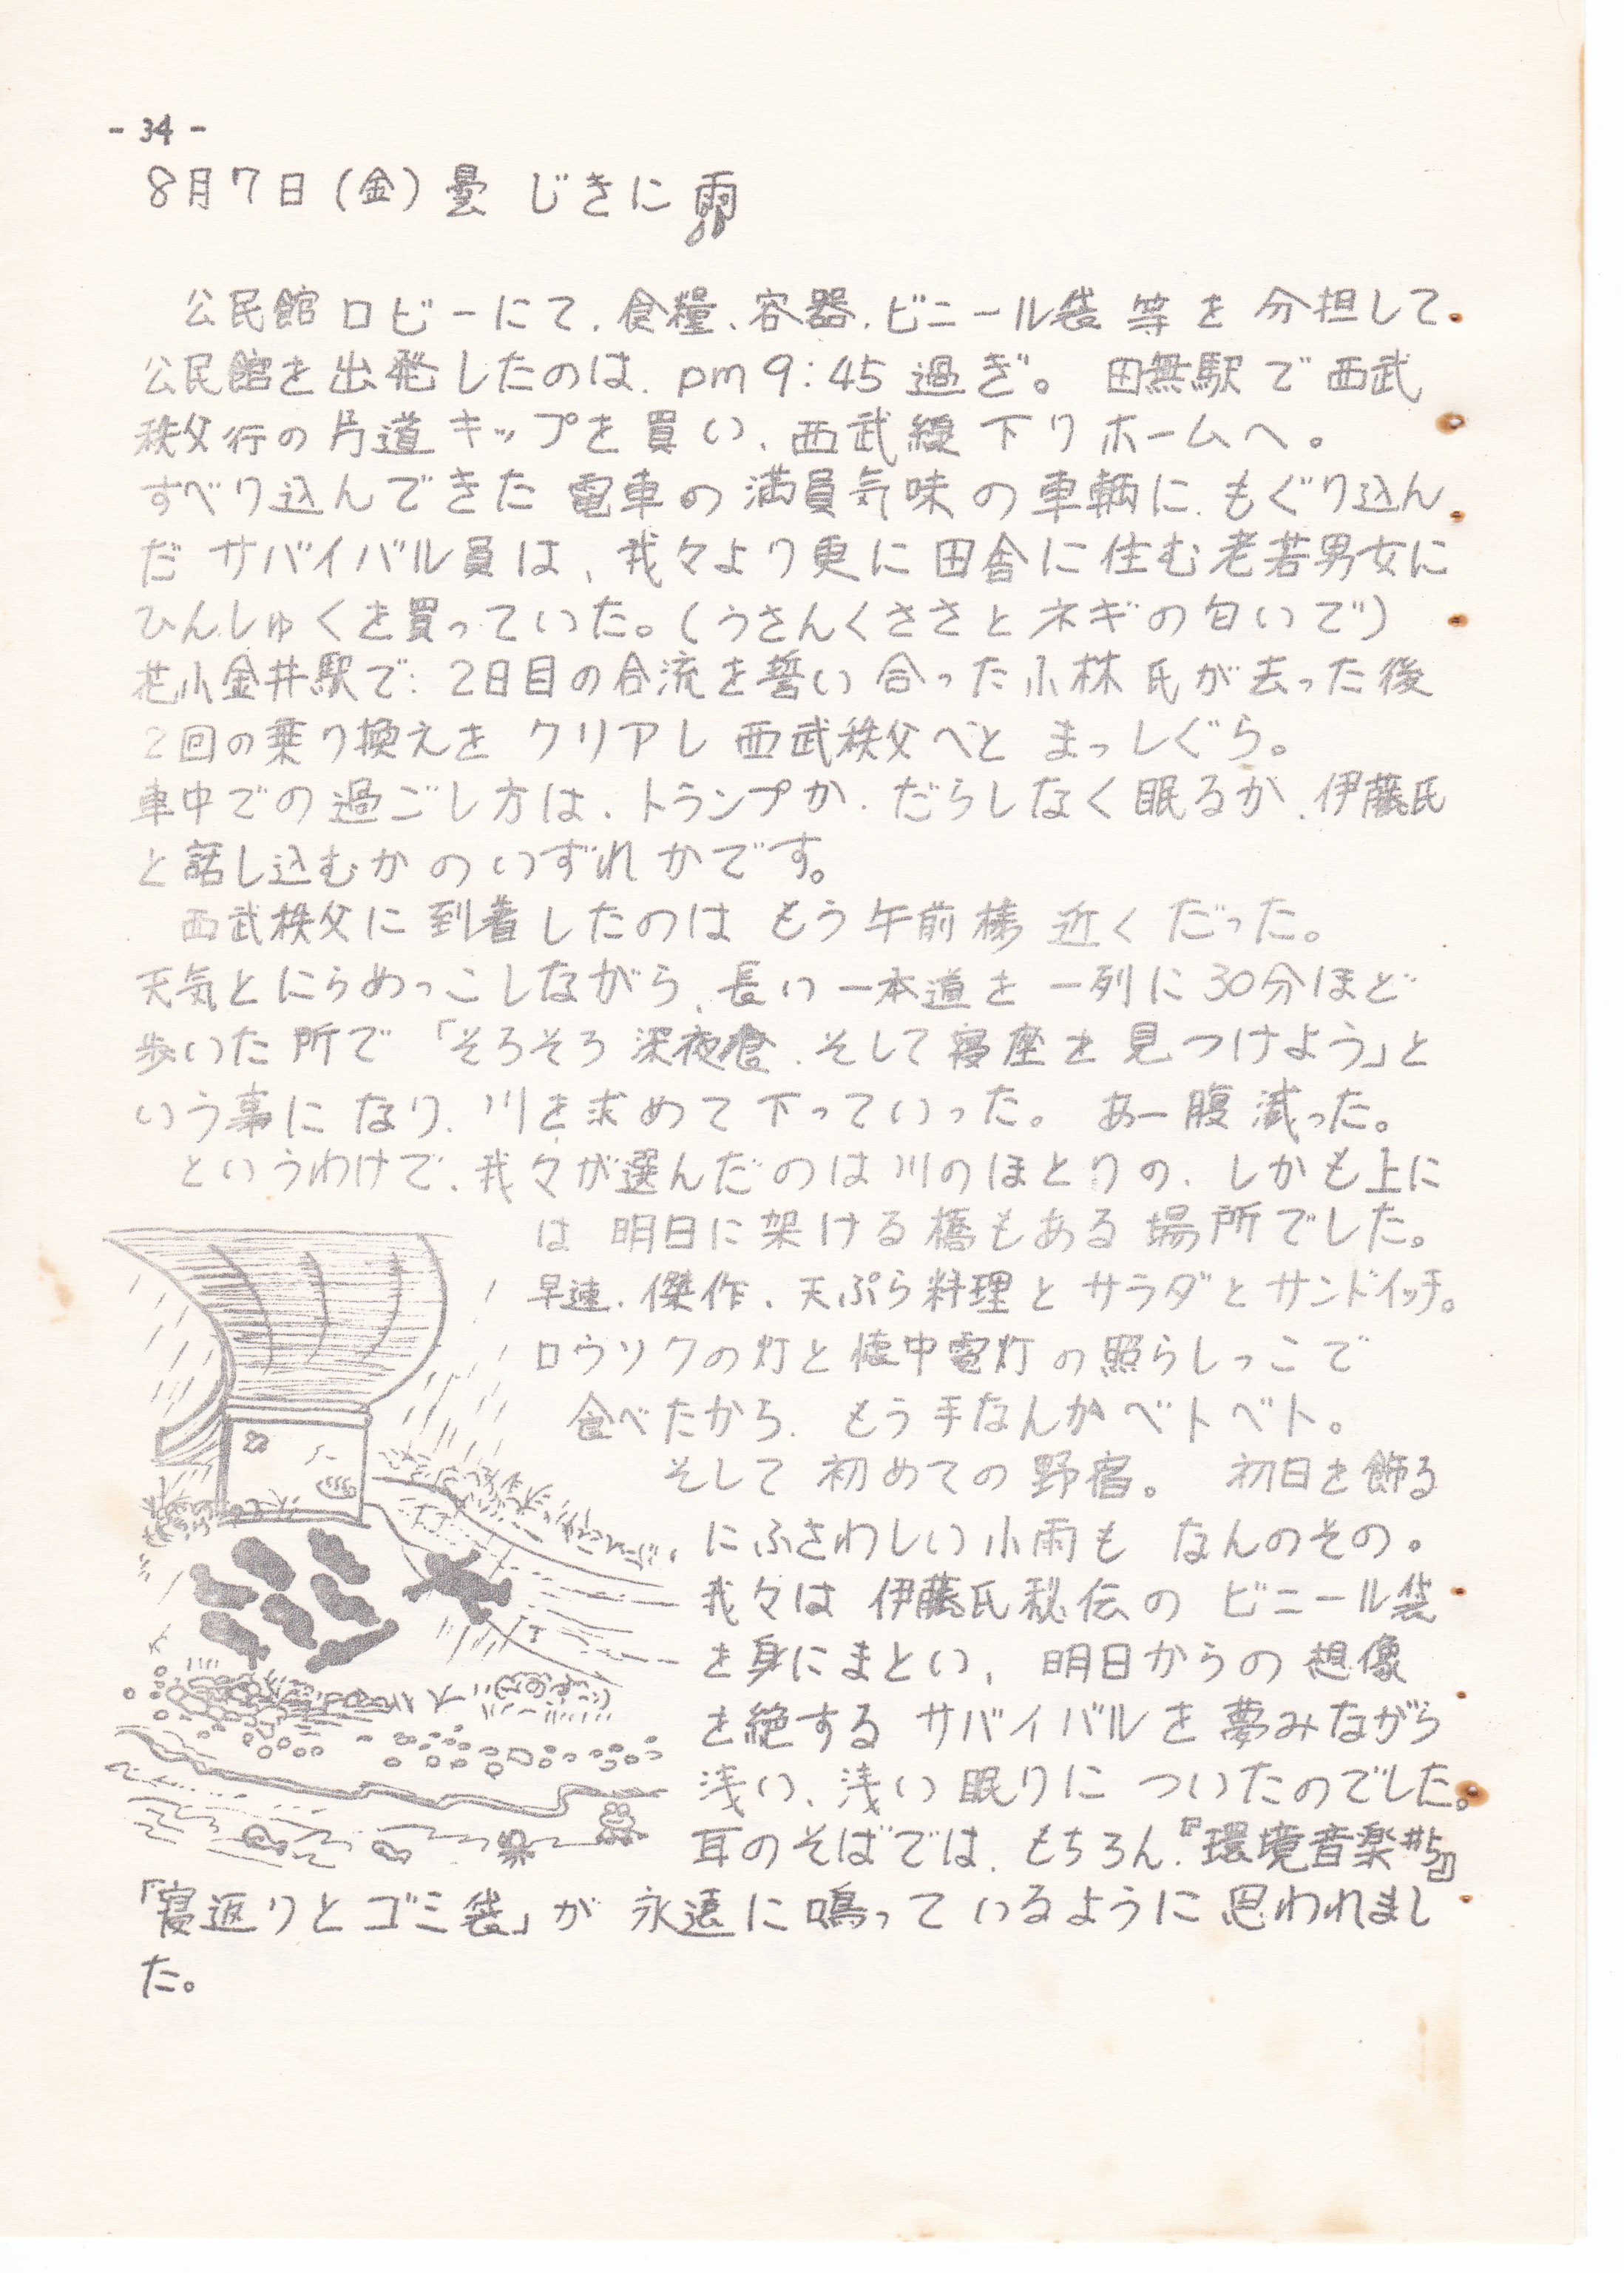 - 34 -
8月7日(金)曇 じきに雨
公民館ロビーにて、食糧、容器、ビニール袋等を分担して
公民館を出発したのは、pm9:45過ぎ。 田無駅で西武
秩父行の片道キップを買い、西武線下りホームへ。
すべり込んできた電車の満員気味の車輌に、もぐり込ん
だサバイバル員は、我々より更に田舎に住む老若男女に
ひんしゅくを買っていた。(うさんくささとネギの匂いで)
花小金井駅で、2日目の合流を誓い合った小林氏が去った後
2回の乗り換えをクリアし西武秩父へと まっしぐら。
車中での過ごし方は、トランプか、だらしなく眠るか、伊藤氏
と話し込むかのいずれかです。
西武秩父に到着したのは もう午前様近くだった。
天気とにらめっこしながら、長い一本道を一列に30分ほど
歩いた所で「そろそろ深夜食、そして寝座を見つけよう」と
いう事になり、川を求めて下っていった。 あー腹減った。
というわけで、我々が選んだのは川のほとりの、しかも上に
は 明日に架ける橋もある場所でした。
早速、傑作、天ぷら料理とサラダとサンドイッチ。
ロウソクの灯と懐中電灯の照らしっこで
食べたから、もう手なんかベトベト。
そして初めての野宿。 初日を飾る
にふさわしい小雨も なんのその。
我々は 伊藤氏秘伝の ビニール袋
を身にまとい、明日からの想像
を絶する サバイバルを夢みながら
浅い、浅い眠りに ついたのでした。
耳のそばでは、もちろん、『環境音楽#5』
「寝返りとゴミ袋」が 永遠に鳴っているように思われまし
た。